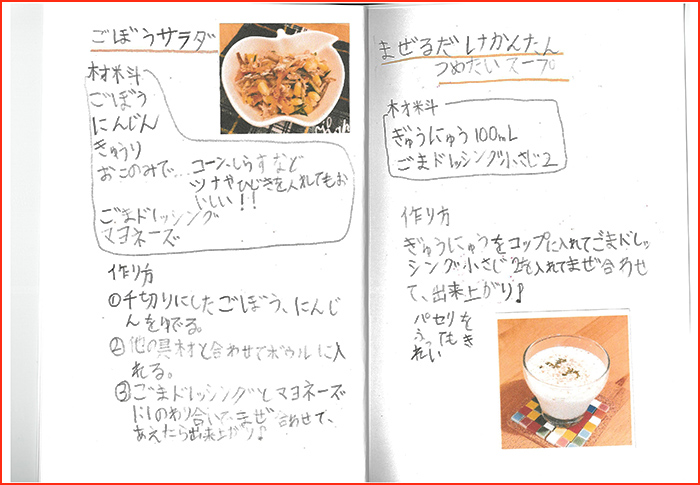 ごぼうサラダ
材料
ごぼう
にんじん
きゅうり
おこのみで…コーン、しらすなど
ツナやひじきを入れてもお
いしい!!
ごまドレッシング
マヨネーズ
作り方
①千切りにしたごぼう、にんじ
んをゆでる。
②他の具材と合わせてボウルに入
れる。
③ごまドレッシングとマヨネーズ
1:1のわり合いでまぜ合わせて、
あえたら出来上がり♪
まぜるだけかんたん
つめたいスープ
材料
ぎゅうにゅう100mL
ごまドレッシング小さじ2
作り方
ぎゅうにゅうをコップに入れてごまドレッ
シング小さじ2を入れてまぜ合わせ
て、出来上がり♪
パセリを
ふってもき
れい